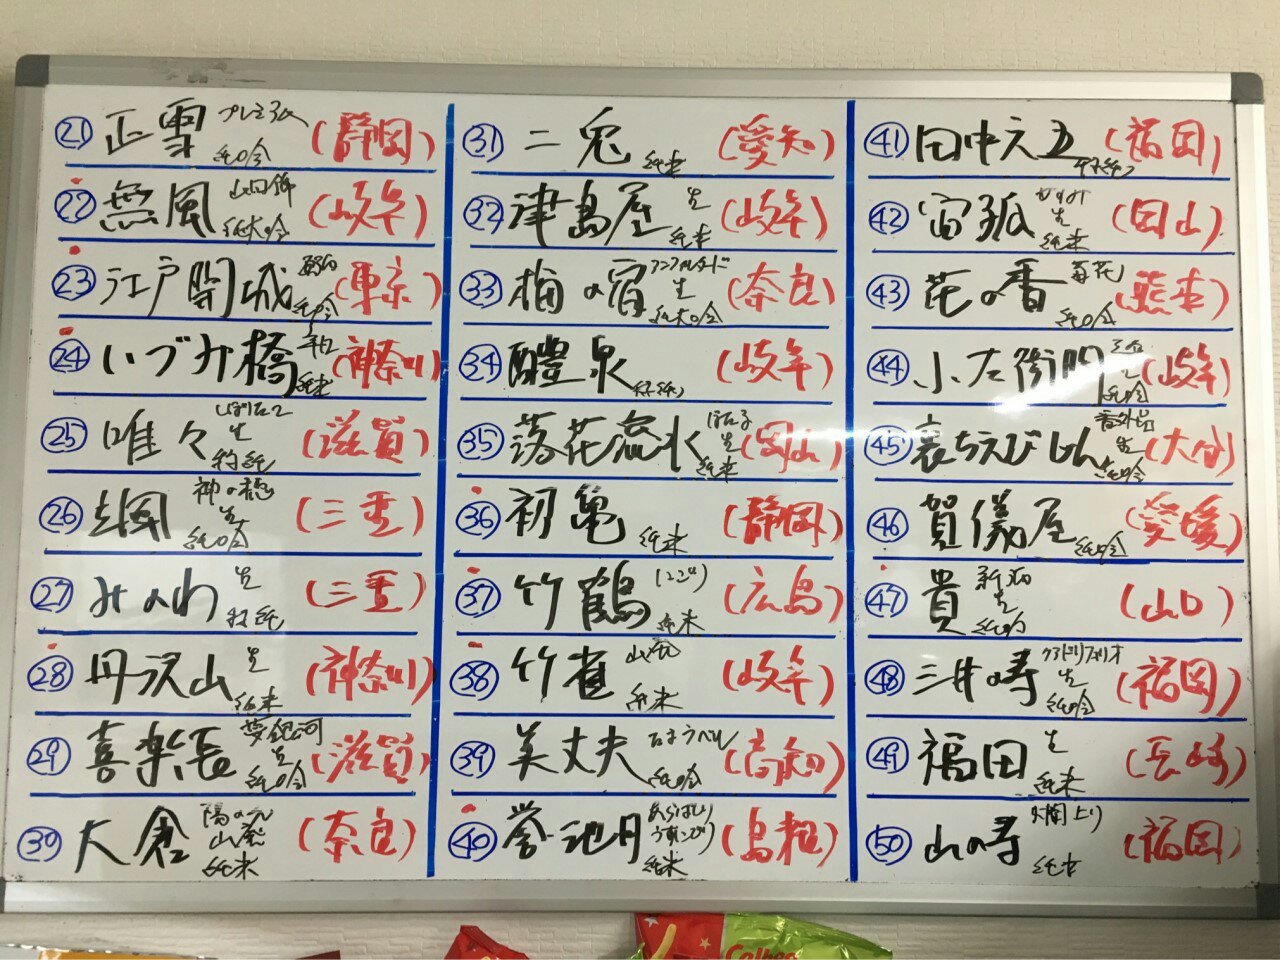 21 正雪 プレミアム 純吟 (静岡)
22 無風 山田錦 純大吟 (岐阜)
23 江戸開城 純吟 (東京)
24 いづみ橋 純米 (神奈川)
25 唯々 しぼりたて 生 特純 (滋賀)
26 神の穂 生 純吟 (三重)
27 みのわ 生 特純 (三重)
28 丹沢山 生 純米 (神奈川)
29 喜楽長 夢銀河 生 純吟 (滋賀)
30 大倉 陽の光 山廃 純米 (奈良)
31 二兎 純米 (愛知)
32 津島屋 生 純米 (岐阜)
33 梅の宿 アンフィルタード 生 純大吟 (奈良)
34 醴泉 (岐阜)
35 落花流水 生 純米 (岡山)
36 初亀 純米 (静岡)
37 竹鶴 純米 (広島)
38 竹雀 山廃 純米 (岐阜)
39 美丈夫 純吟 (高知)
40 誉池月 あらばしり 純米 (島根)
41 田中六五 (福岡)
42 宙狐 生 純米 (岡山)
43 花の香 菊花 純吟 (熊本)
44 小左衛門 生 純吟 (岐阜)
45 裏ちえびじん 番外品 生 純吟 (大分)
46 賀儀屋 純吟 (愛媛)
47 貴 新酒 生 純吟 (山口)
48 三井の寿 クアドリフォリオ 生 純吟 (福岡)
49 福田 生 純米 (長崎)
50 山の寿 純米 (福岡)
Calbee